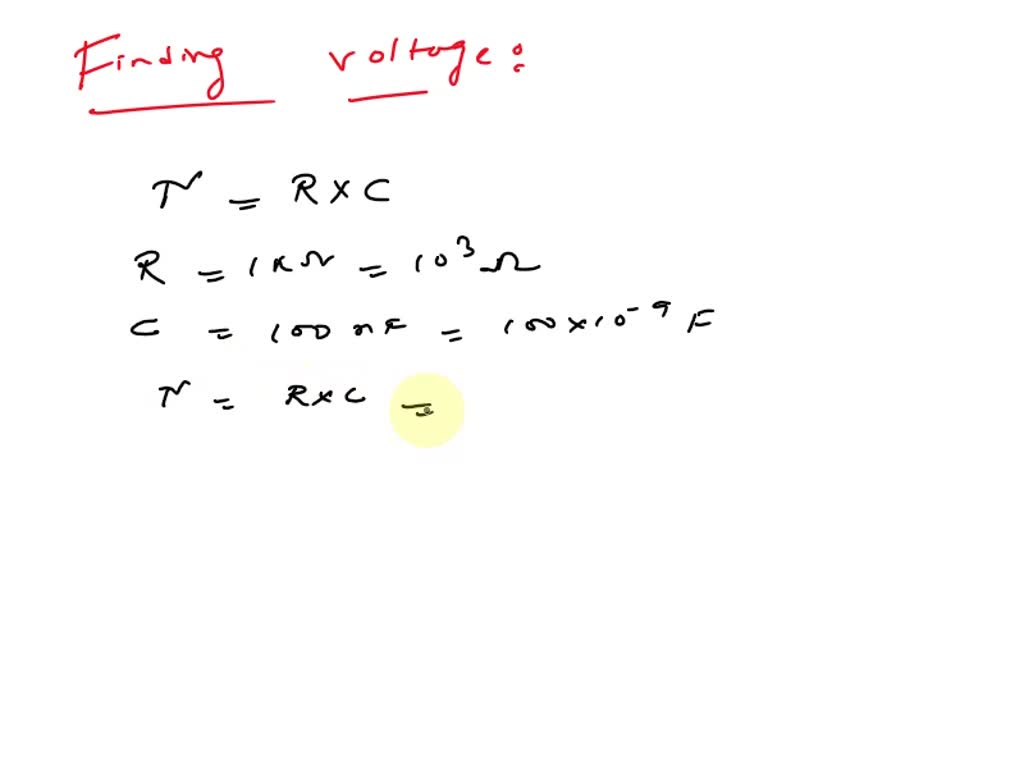 Finding voltage:
τ = R × C
R = 1KΩ = 10³ Ω
C = 100 nF = 100 × 10⁻⁹ F
τ = R × C =